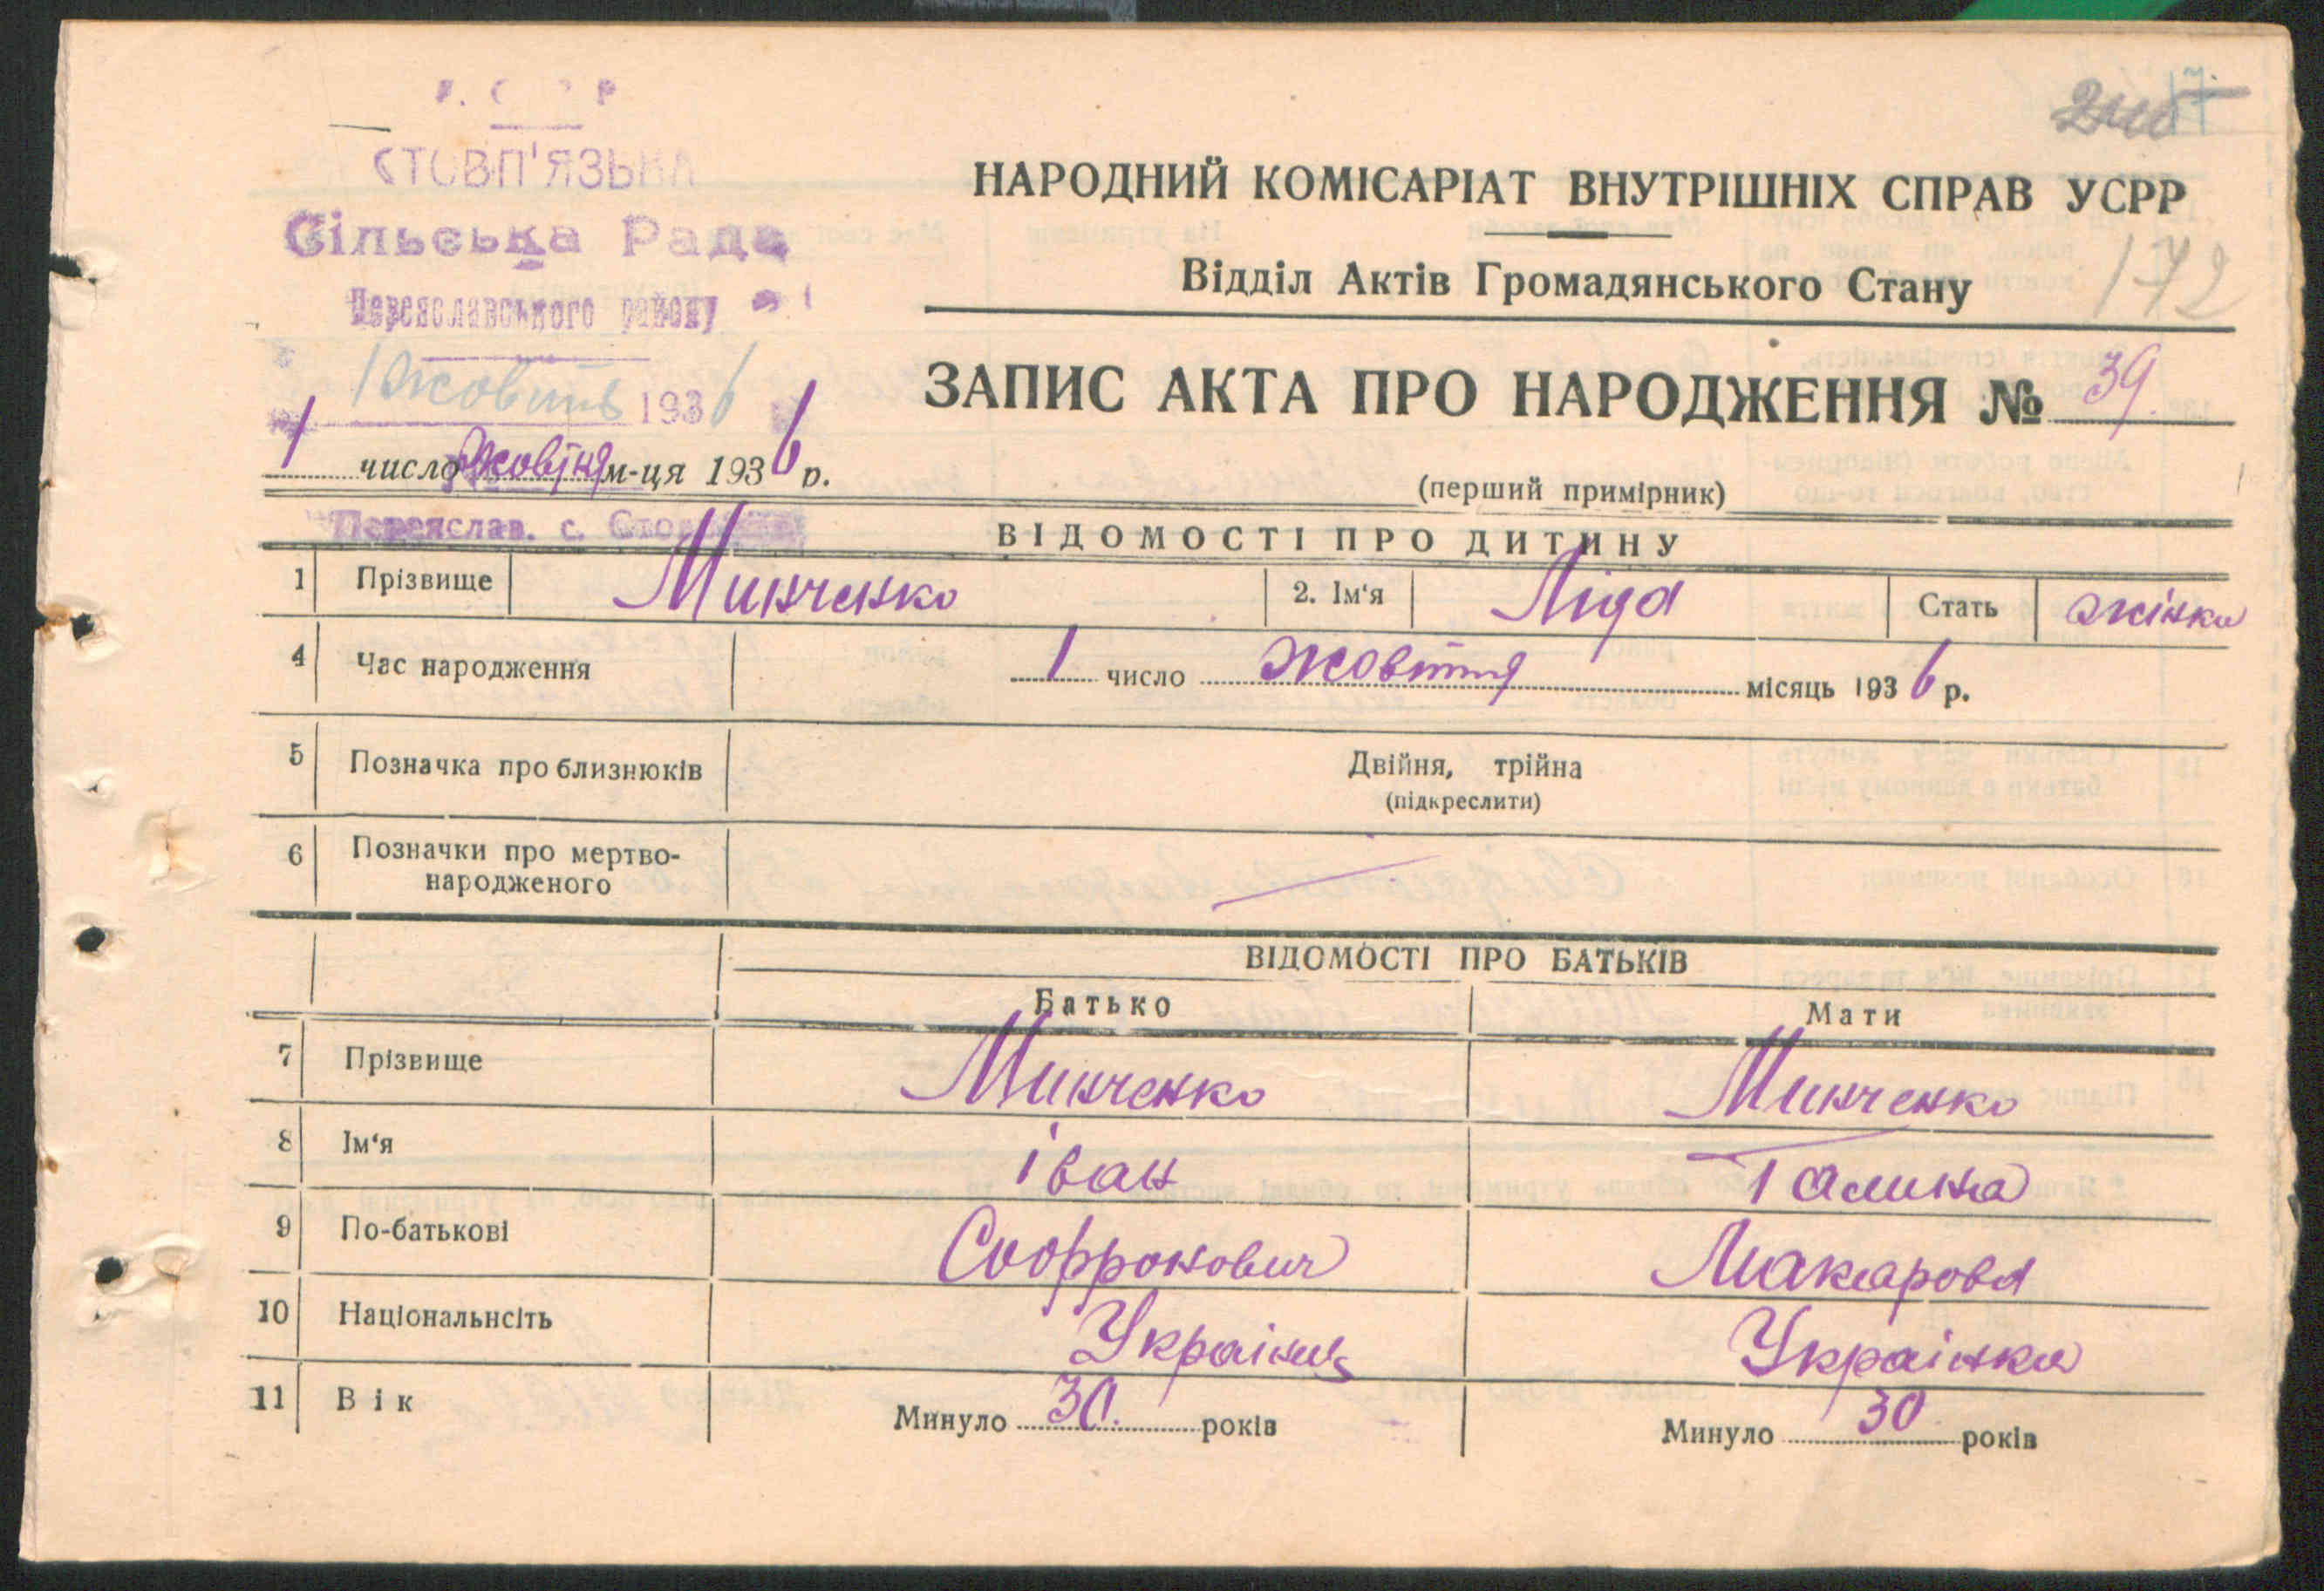 СТОВП'ЯЗЬКА
Сільська Рада
Переяславського району
1 Жовтня 1936
1 число Жовтня м-ця 1936 р.
Переяслав. с.
17
172
НАРОДНИЙ КОМІСАРІАТ ВНУТРІШНІХ СПРАВ УСРР
Відділ Актів Громадянського Стану
ЗАПИС АКТА ПРО НАРОДЖЕННЯ № 39.
(перший примірник)
ВІДОМОСТІ ПРО ДИТИНУ
1 Прізвище Минченко 2. Ім'я Ліда Стать жінка
4 Час народження 1 число Жовтня місяць 1936 р.
5 Позначка про близнюків Двійня, трійна
(підкреслити)
6 Позначки про мертво-
народженого
ВІДОМОСТІ ПРО БАТЬКІВ
Батько Мати
7 Прізвище Минченко Минченко
8 Ім'я іван Галина
9 По-батькові Софронович Макарова
10 Національнсіть Українець Українка
11 Вік Минуло 30. років Минуло 30 років